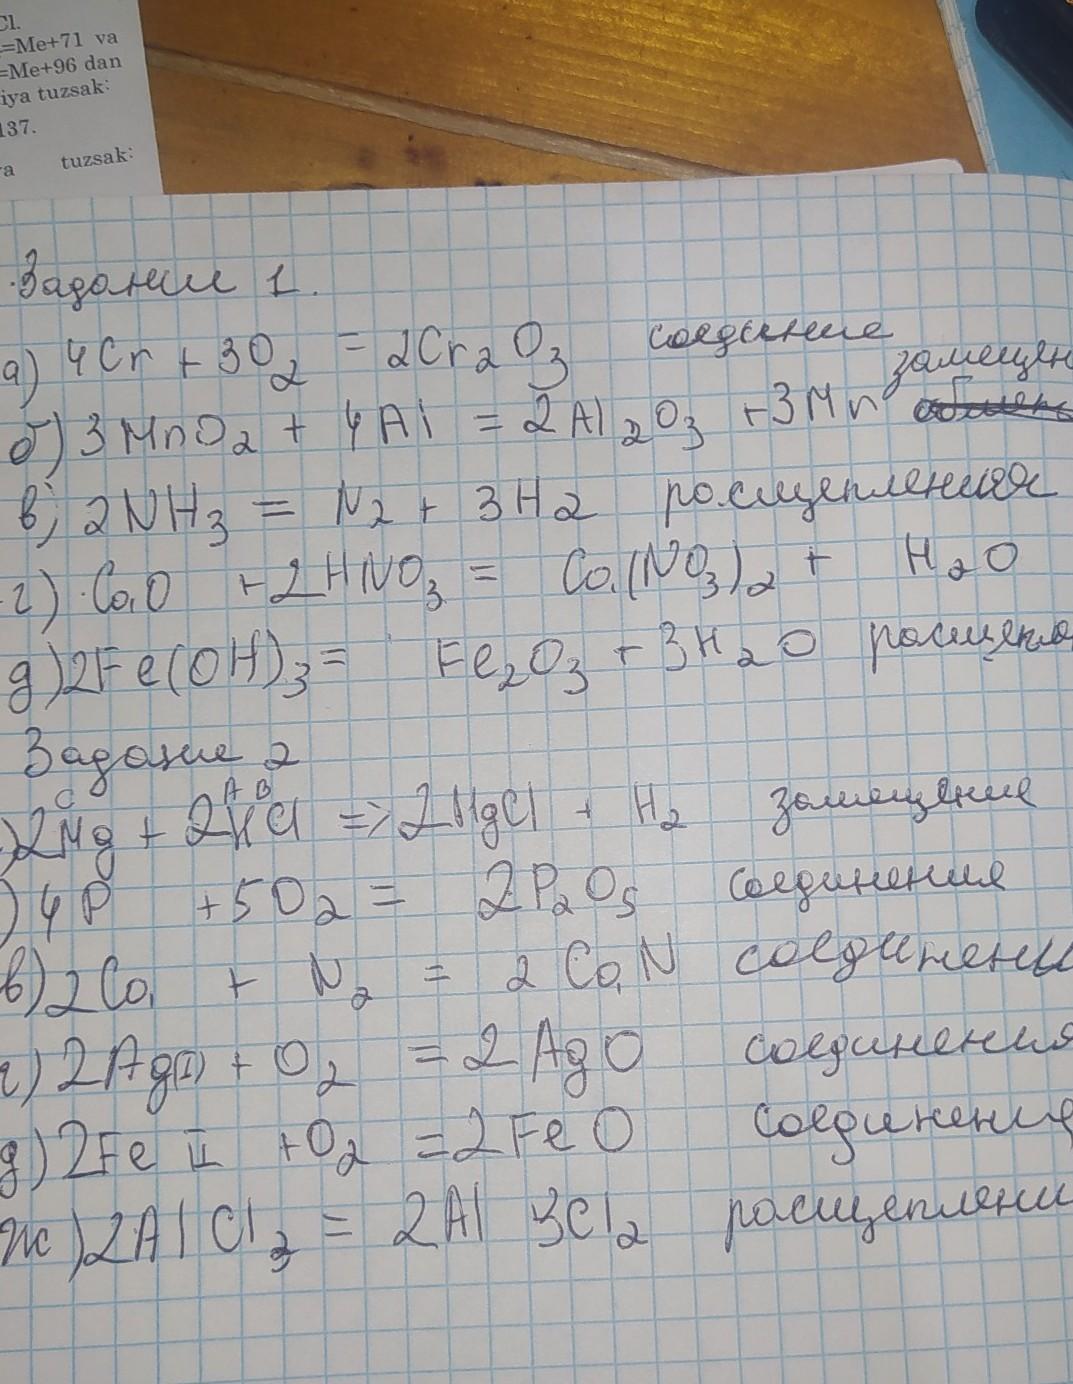 Cl.
=Me+71 va
=Me+96 dan
iya tuzsak:
137.
a tuzsak:
Задание 1.
а) 4Cr + 3O2 = 2Cr2O3 соединие
замещен
б) 3MnO2 + 4Al = 2Al2O3 + 3Mn
в) 2NH3 = N2 + 3H2 расщепления
г) CaO + 2HNO3 = Ca(NO3)2 + H2O
д) 2Fe(OH)3 = Fe2O3 + 3H2O расщепл
Задание 2
C A B
) 2Mg + 2HCl => 2MgCl + H2 замещение
) 4P + 5O2 = 2P2O5 соединения
в) 2Ca + N2 = 2CaN соединени
г) 2Ag(I) + O2 = 2AgO соединения
д) 2Fe II + O2 = 2FeO соединения
ж) 2AlCl3 = 2Al 3Cl2 расщеплени